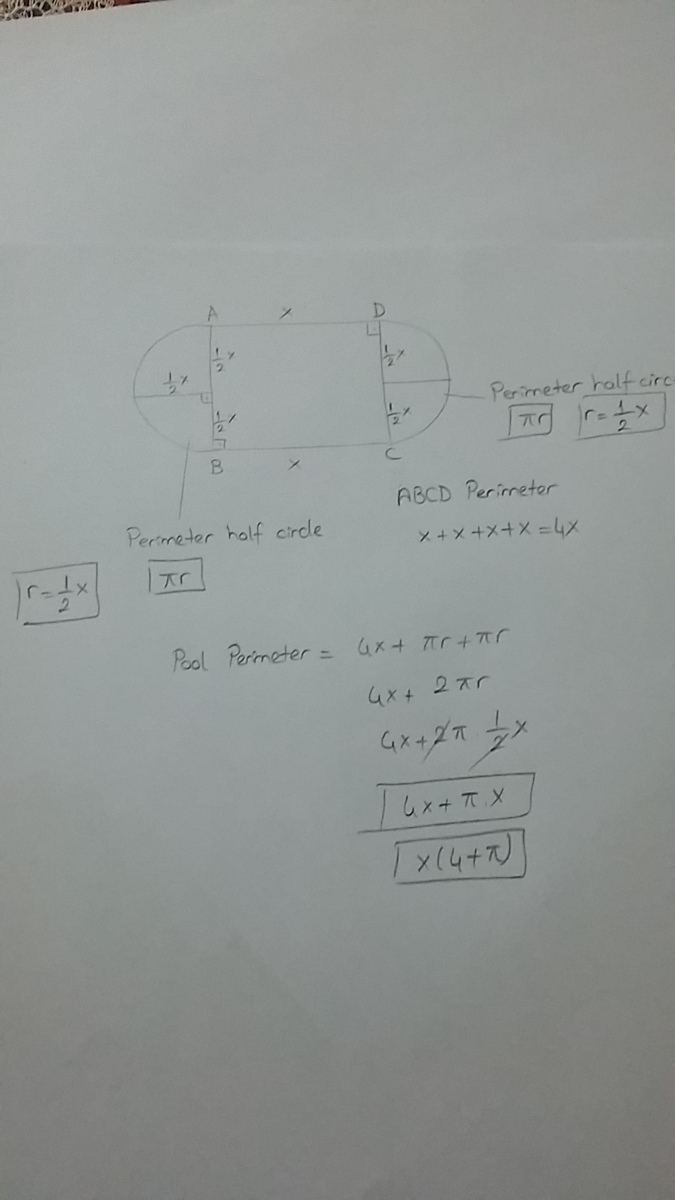 A x D
½x ½x ½x
½x ½x
B x C
Perimeter half circ
πr r=½x
ABCD Perimeter
x+x+x+x=4x
Perimeter half circle
r=½x πr
Pool Perimeter = 4x+ πr+πr
4x+ 2πr
4x+2π.½x
4x+π.x
x(4+π)